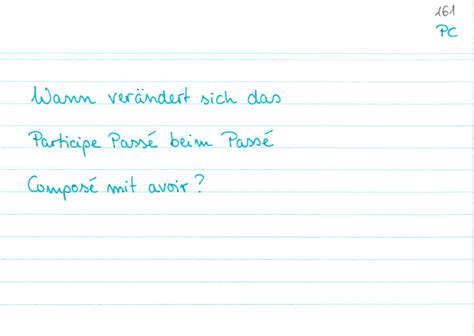 161
PC
Wann verändert sich das
Participe Passé beim Passé
Composé mit avoir?